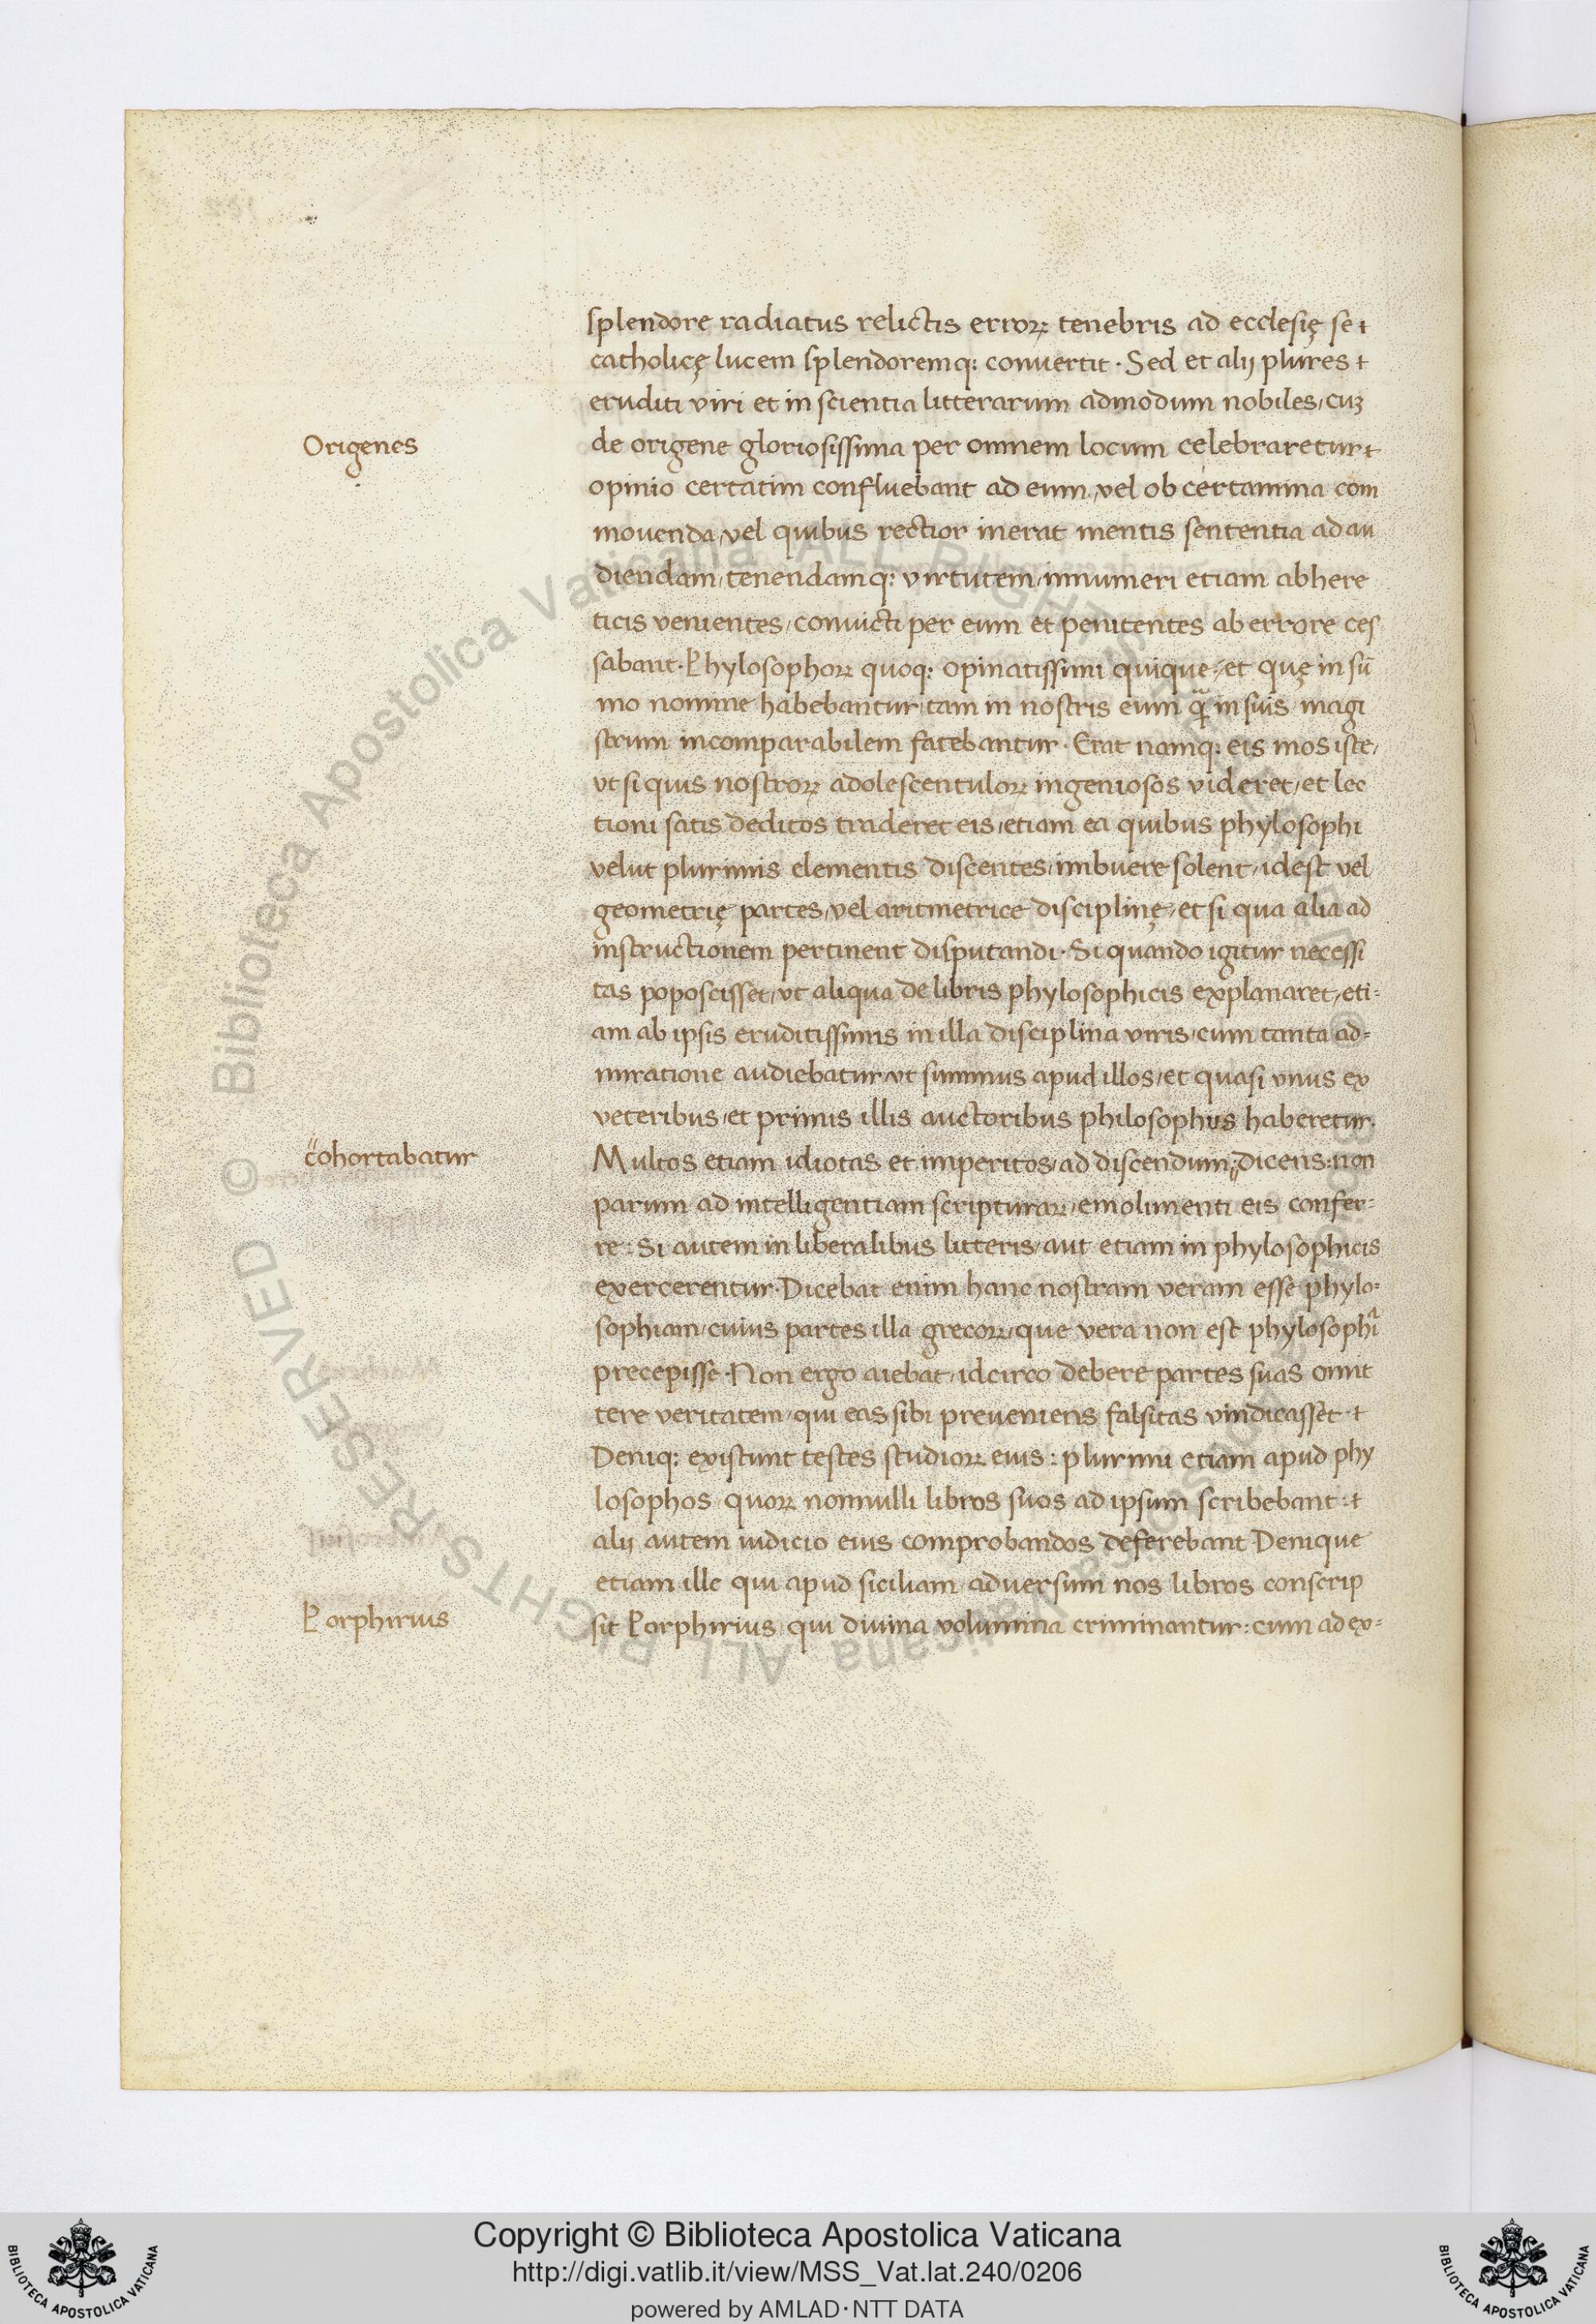 splendore radiatus relictis erroꝝ tenebris ad ecclesię se
catholicę lucem splendoremq: convertit · Sed et alij plures
eruditi viri et in scientia litterarum admodum nobiles, cuꝫ
Origenes
de origene gloriosissima per omnem locum celebraretur
opinio certatim confluebant ad eum, vel ob certamina com
movenda, vel quibus rectior inerat mentis sententia ad au
diendam, tenendamq: virtutem, innumeri etiam ab here
ticis venientes, convicti per eum et penitentes ab errore ces
sabant · Phylosophoꝝ quoq: opinatissimi quique, et quę in sū
mo nomine habebantur, tam in nostris eum qͣ in suis magi
strum incomparabilem fatebantur · Erat namq: eis mos iste,
vt si quis nostroꝝ adolescentuloꝝ ingeniosos videret, et lec
tioni satis deditos traderet eis, etiam ea quibus phylosophi
velut plurimis elementis discentes, imbuere solent, idest vel
geometrię partes, vel aritmetrice disciplinę, et si qua alia ad
instructionem pertinent disputandi · Si quando igitur necessi
tas poposcisset, vt aliqua de libris phylosophicis explanaret, eti-
am ab ipsis eruditissimis in illa disciplina viris, cum tanta ad-
miratione audiebatur, vt summus apud illos, et quasi vnus ex
veteribus, et primis illis auctoribus philosophus haberetur.
cohortabatur
Multos etiam idiotas et imperitos, ad discendum, dicens: non
parum ad intelligentiam scripturaꝝ, emolimenti eis confer-
re: Si autem in liberalibus litteris, aut etiam in phylosophicis
exercerentur. Dicebat enim hanc nostram veram esse phylo-
sophiam, cuius partes illa grecoꝝ, que vera non est phylosophiͣ
precepisse · Non ergo aiebat, idcirco debere partes suas omit
tere veritatem, qui eas sibi preveniens falsitas vindicasset ·
Deniq: existunt testes studioꝝ eius: plurimi etiam apud phy
losophos, quoꝝ nonnulli libros suos ad ipsum scribebant:
alij autem iudicio eius comprobandos deferebant Denique
etiam ille qui apud siciliam adversum nos libros conscrip
Porphirius
sit Porphirius, qui divina volumina criminantur: cum ad ex-
© Biblioteca Apostolica Vaticana ALL RIGHTS RESERVED
Copyright © Biblioteca Apostolica Vaticana
http://digi.vatlib.it/view/MSS_Vat.lat.240/0206
powered by AMLAD·NTT DATA
BIBLIOTECA APOSTOLICA VATICANA
BIBLIOTECA APOSTOLICA VATICANA